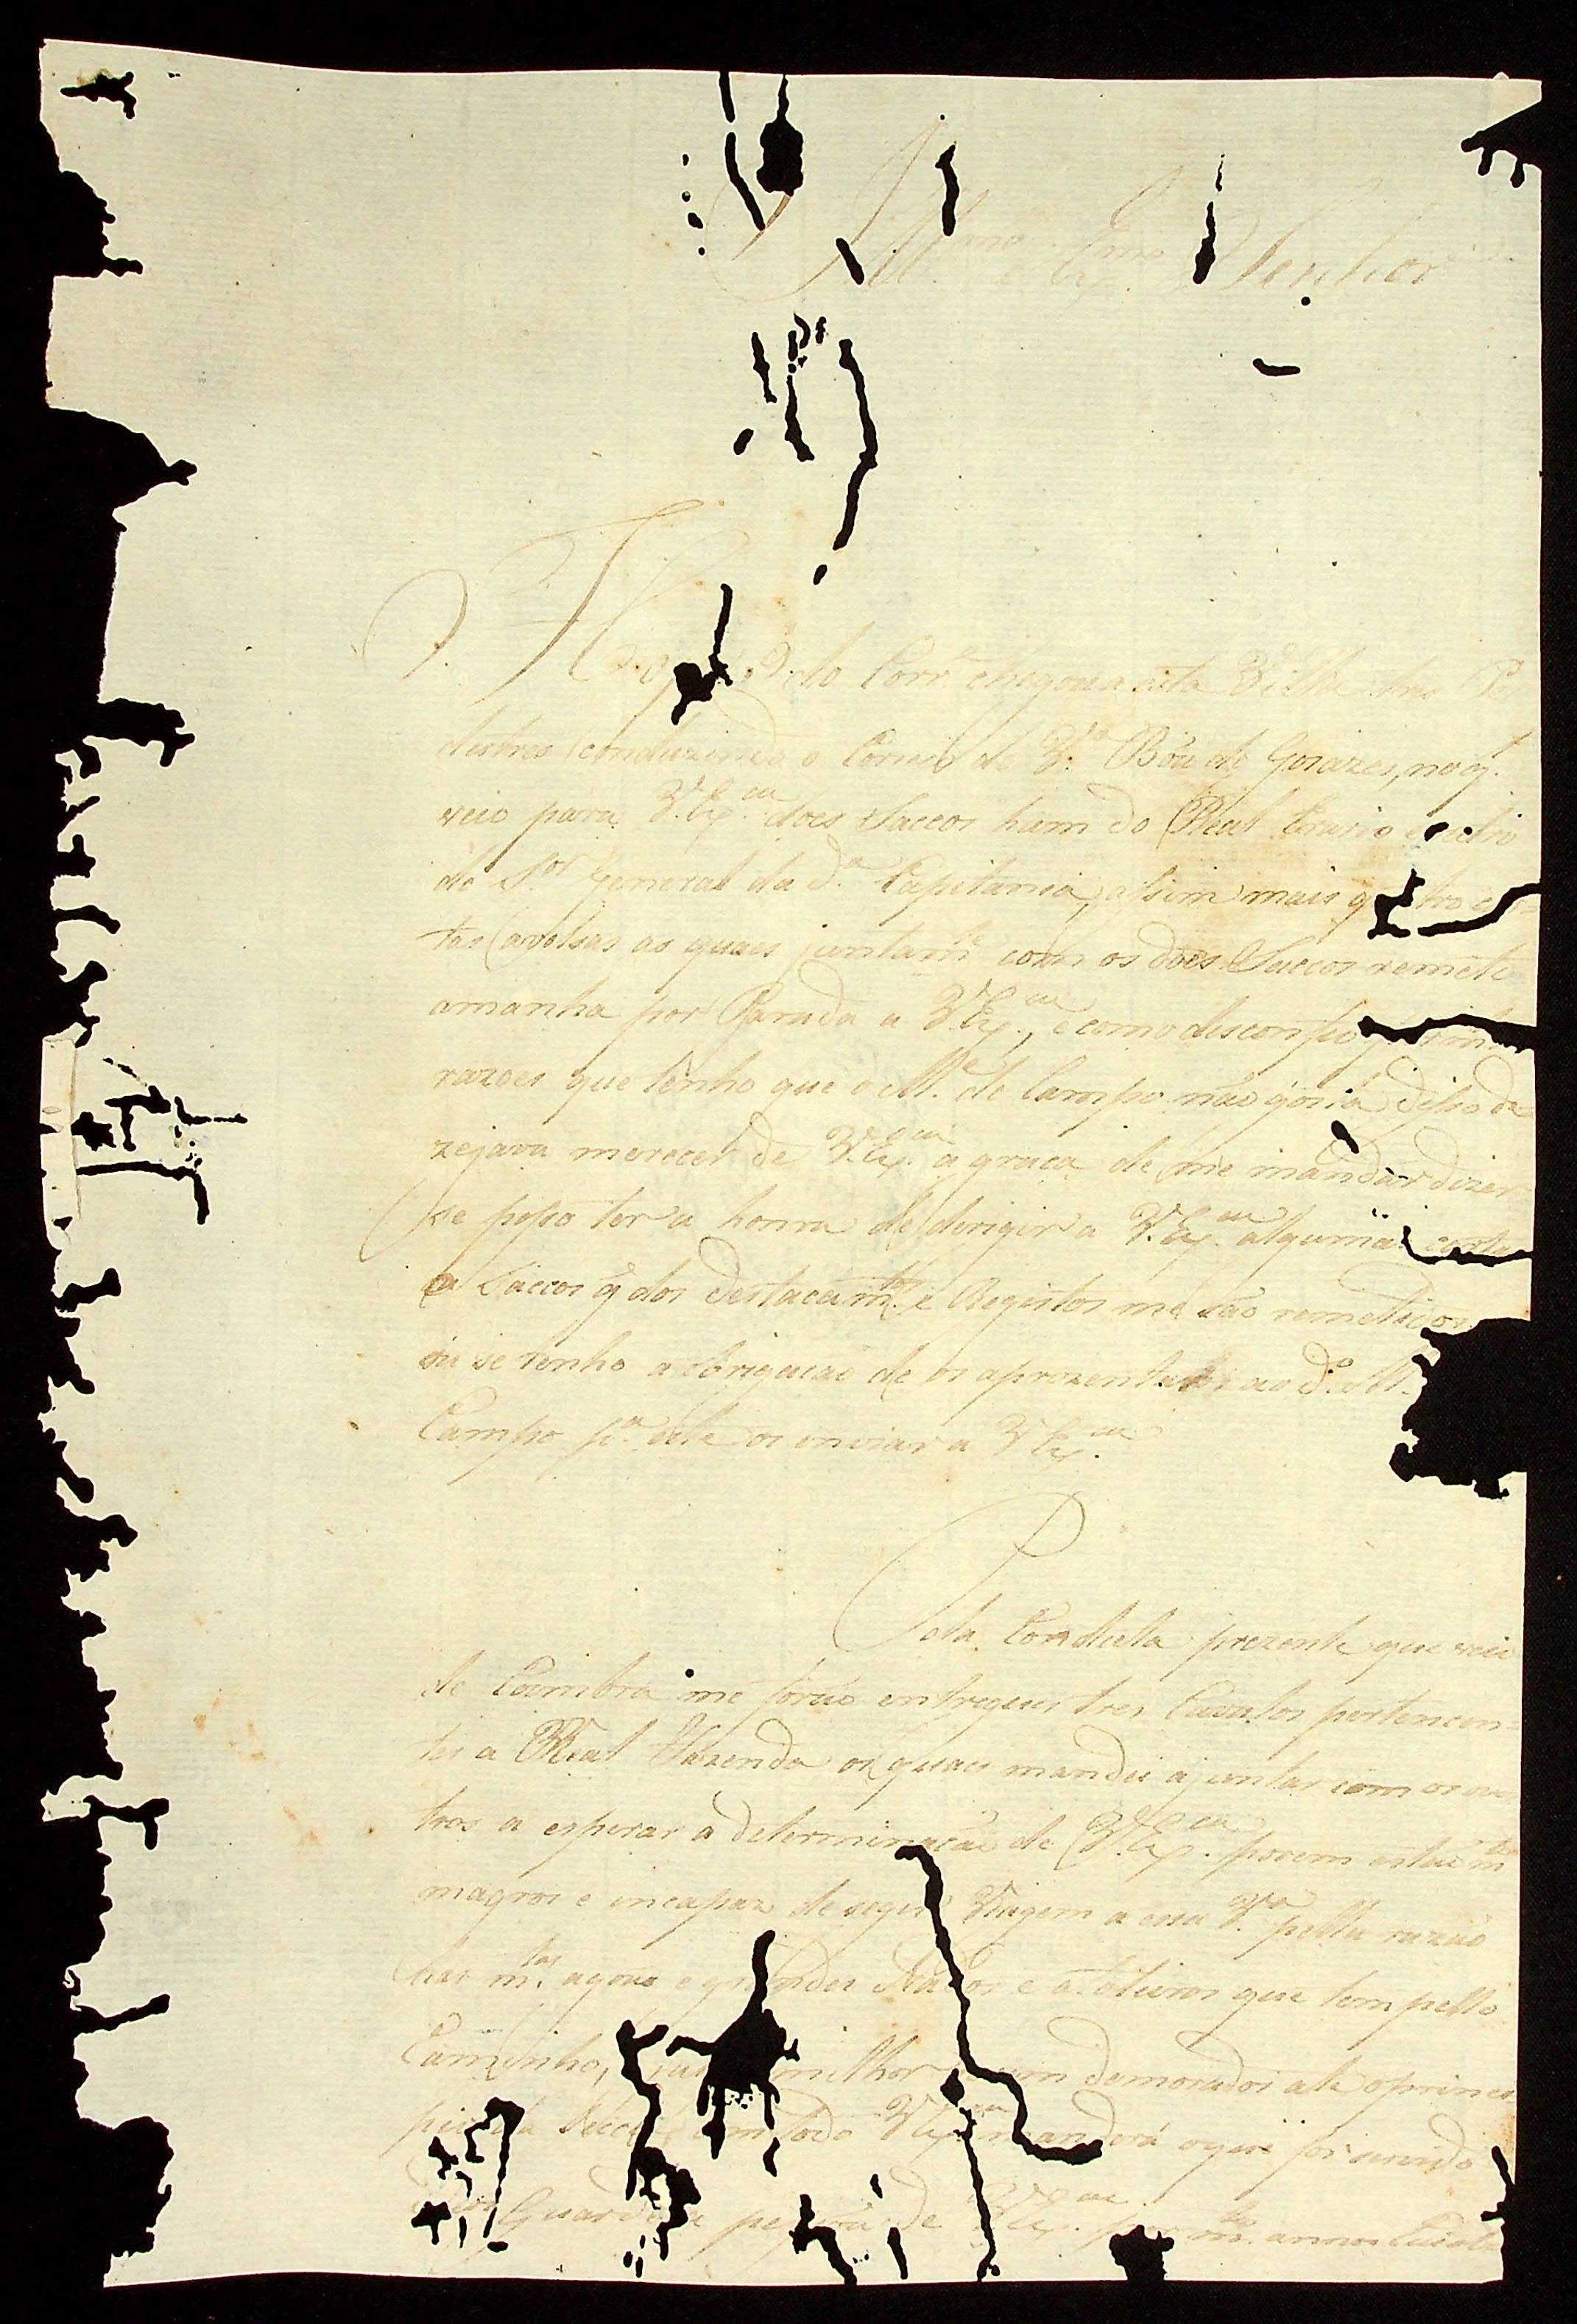 Ill.mo e Ex.mo Senhor
do Corr.e chegou a esta Villa
destres conduzindo o Correio de V.a Bôa de Goiazes, no q.
veio para V. Ex.cia does Saccos hum do Real Erario e outro
do S.or General da d.a Capitania, assim mais
tas avolsas as quaes juntam.te com os does Saccos remeto
amanha por Parada a V. Ex.cia, e como desconfio
razoes que tenho que o M.e de Campo não gosta disso de
zejava merecer de V. Ex.cia a graca de me mandar dizer
se posso ter a honra de derigir a V. Ex.cia alguma carta
Saccos q dos Destacam.tos e Registos me são remetidos
ou se tenho a obrigacão de os aprezentar ao d.o M.
Campo p.a este os enviar a V Ex.cia
Pela Conducta prezente que veio
de Coimbra me forão entregues tres Cavalos pertencen=
tes a Real Fazenda os quaes mandei ajuntar com os ou
tros a esperar a determinacão de V. Ex.cia porem estão m.to
magros e incapaz de seguir Viagem a essa V.a pella razão
das m.tas agoas e grandes e atoleiros que tem pello
Caminho, milhor demorados ate o princi
pio da Secca, em todo V Ex.cia mandará o que for servido
Guarde a pessoa de V Ex.cia por m.tos annos